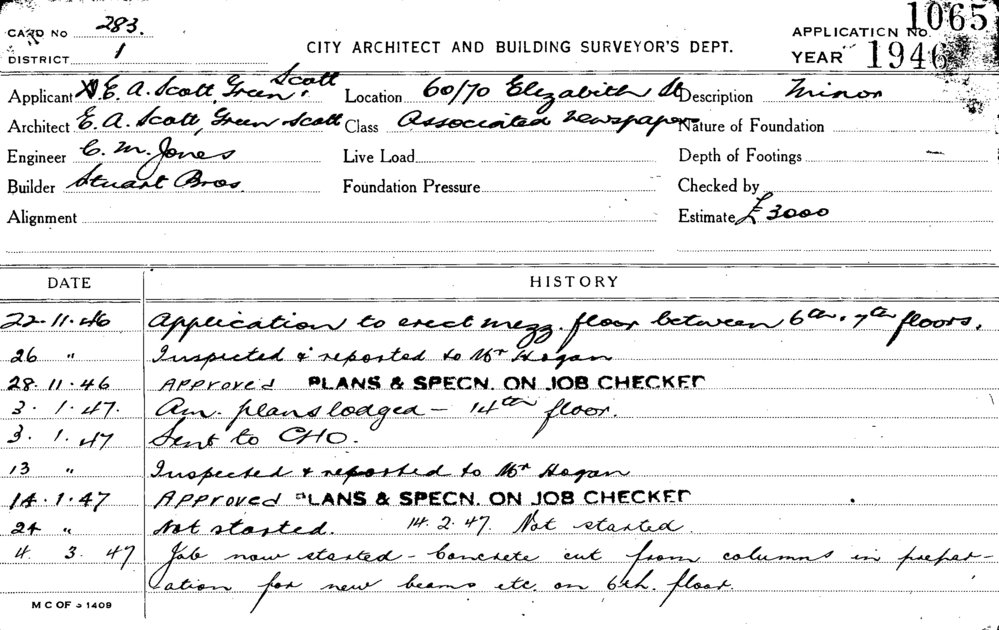 CARD No 283.
DISTRICT 1
CITY ARCHITECT AND BUILDING SURVEYOR'S DEPT.
APPLICATION No. 1065
YEAR 1946
Applicant E. A. Scott, Green, Scott
Location 60/70 Elizabeth St
Description Minor
Architect E. A. Scott, Green Scott
Class Associated Newspapers
Nature of Foundation
Engineer C. M. Jones
Live Load
Depth of Footings —
Builder Stuart Bros.
Foundation Pressure
Checked by
Alignment
Estimate £3000
DATE HISTORY
22.11.46 Application to erect mezz. floor between 6th. 7th floors.
26 " Inspected & reported to Mr Hogan
28.11.46 Approved PLANS & SPECN. ON JOB CHECKED
3.1.47. Am. plans lodged — 14th floor.
3.1.47 Sent to CHO.
13 " Inspected & reported to Mr Hogan
14.1.47 Approved PLANS & SPECN. ON JOB CHECKED
24 " Not started. 14.2.47. Not started.
4.3.47 Job now started – Concrete cut from columns in prepar-
ation for new beams etc. on 6th. floor.
M C OF S 1409